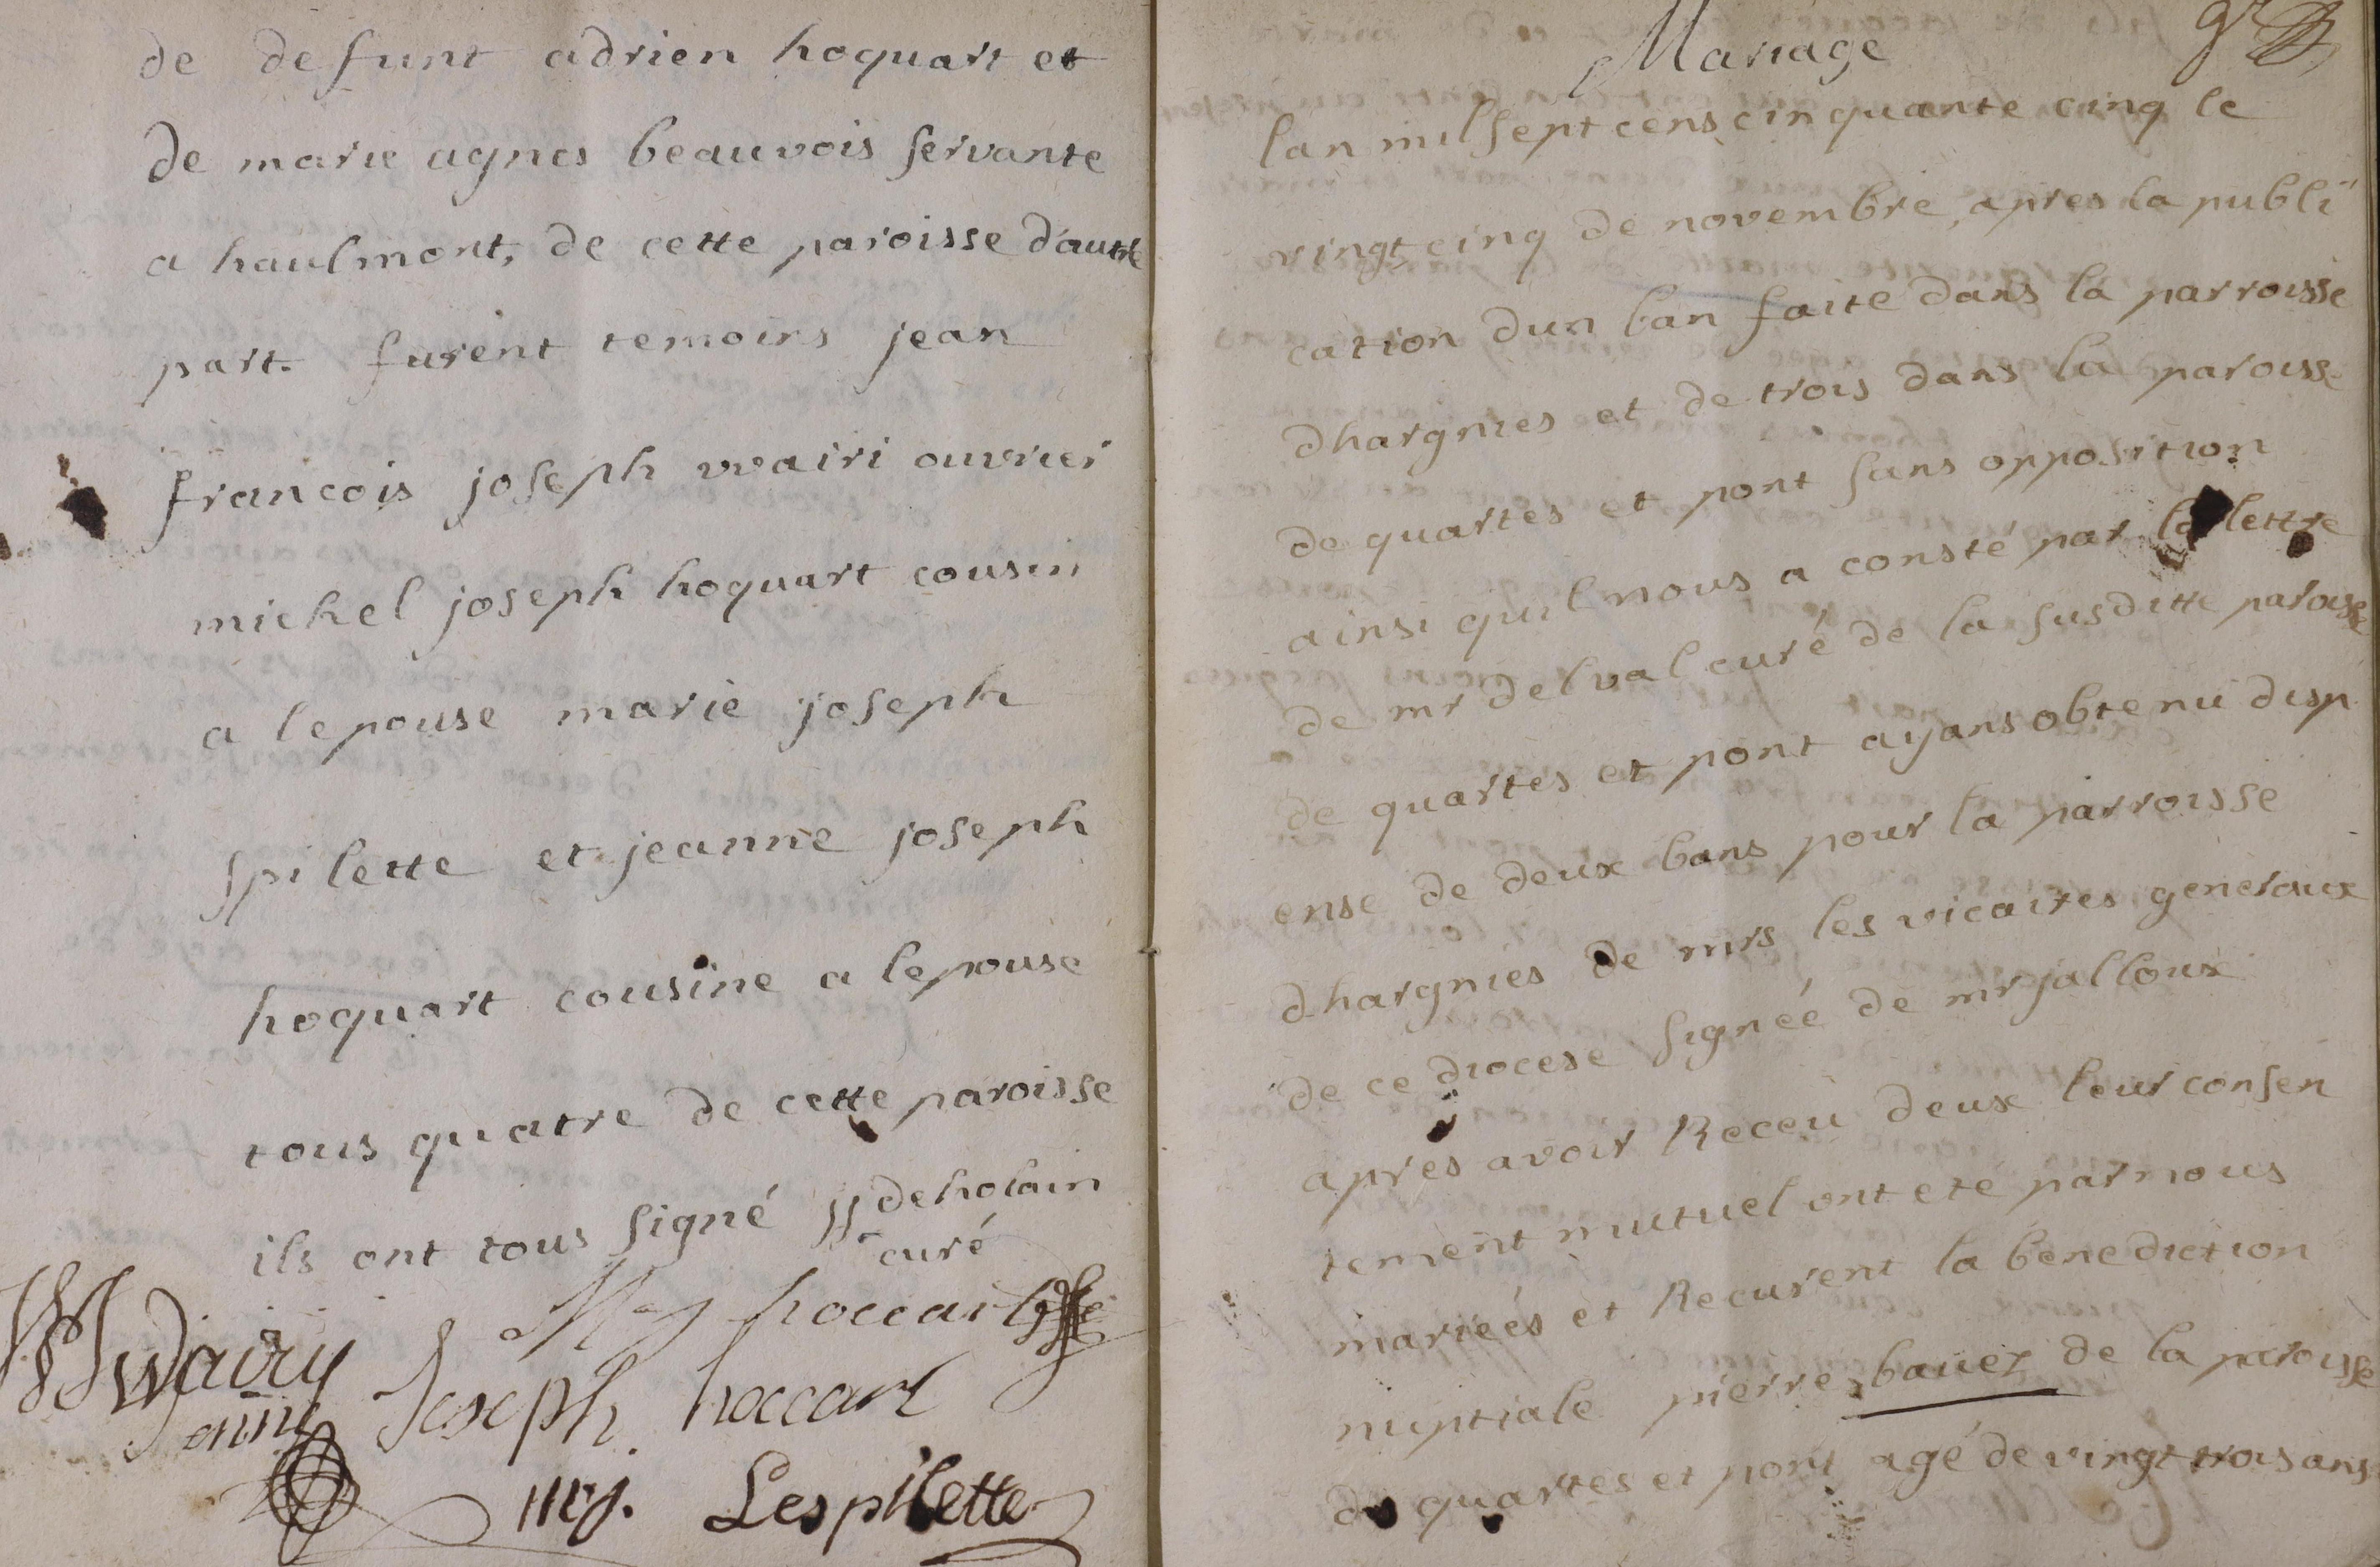 de defunt adrien hoquart et
de marie agnes beauvois servante
a haulmont, de cette paroisse dautre
part. furent temoins jean
francois joseph wairi ouvrier
michel joseph hoquart cousin
a lepouse marie joseph
spilette et jeanne joseph
hoquart cousine a lepouse
tous quatre de cette paroisse
ils ont tous signé deholain
curé
hoccart
wairy
Joseph hoccart
anne
mj. Lespilette
Mariage
lan mil sept cens cinquante cinq le
vingt cinq de novembre, apres la publi
cation dun ban faite dans la parroisse
dhargnies et de trois dans la paroisse
de quartes et pont sans opposition
ainsi quil nous a consté par la lettre
de mr delval curé de la susditte paroisse
de quartes et pont ayans obtenu disp
ense de deux bans pour la parroisse
dhargnies de mrs les vicaires generaux
de ce diocese signéé de mr jalloux
apres avoir Receu deux leur consen
tement mutuel ont eté par nous
mariéés et Recurent la benediction
nuptiale pierre bauer de la paroisse
de quartes et pont agé de vingt trois ans